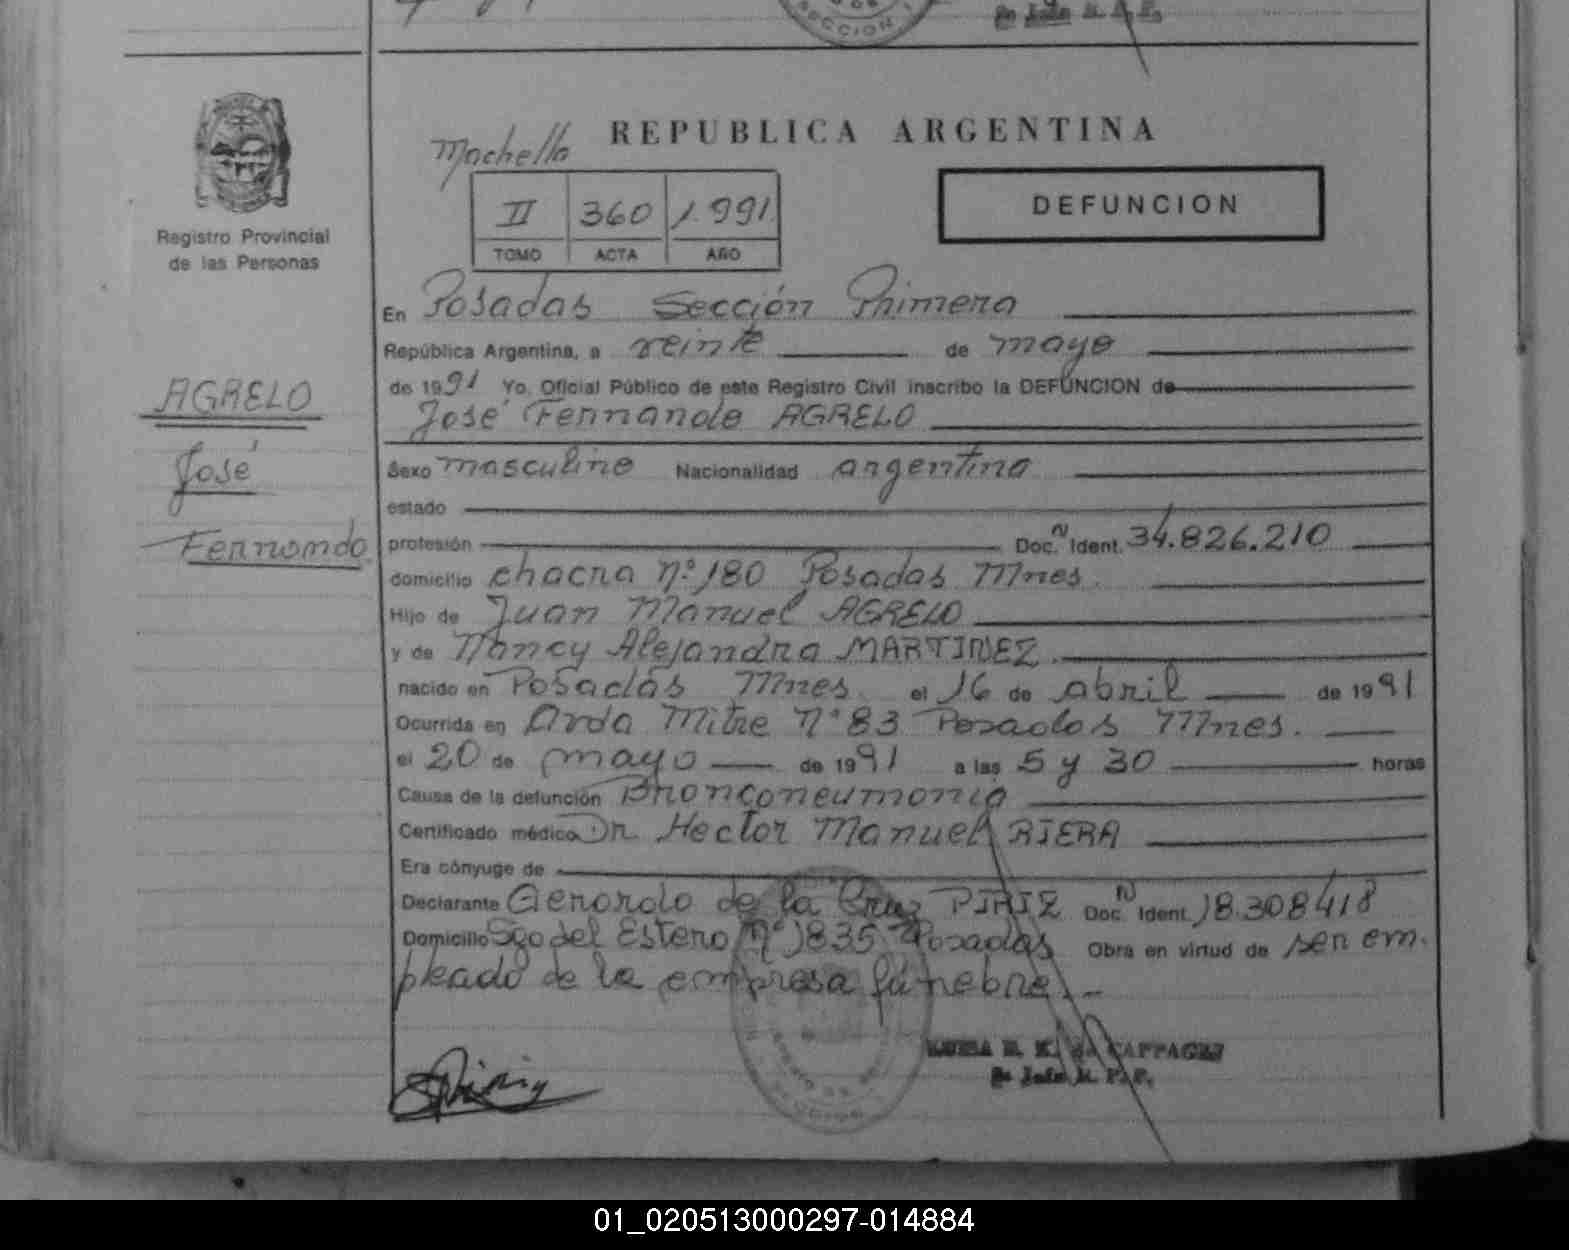 SECCION
REPUBLICA ARGENTINA
Machella
II 360 1.991
TOMO ACTA AÑO
DEFUNCION
Registro Provincial
de las Personas
En Posadas Sección Primera
República Argentina, a veinte de mayo
de 1991 Yo, Oficial Público de este Registro Civil inscribo la DEFUNCION de
José Fernando AGRELO
AGRELO
José
Fernando
Sexo masculino Nacionalidad argentina
estado
profesión Doc. N Ident. 34.826.210
domicilio chacra n° 180 Posadas Mnes.
Hijo de Juan Manuel AGRELO
y de Nancy Alejandra MARTINEZ.
nacido en Posadas Mnes. el 16 de abril de 1991
Ocurrida en Avda Mitre N° 83 Posadas Mnes.
el 20 de mayo de 1991 a las 5 y 30 horas
Causa de la defunción Bronconeumonia
Certificado médico Dr. Hector Manuel RIERA
Era cónyuge de
Declarante Gerardo de la Cruz PIRIZ Doc. N Ident. 18.308.418
Domicilio Sgo del Estero N° 1835 Posadas Obra en virtud de ser em-
pleado de la empresa fúnebre.-
01_020513000297-014884